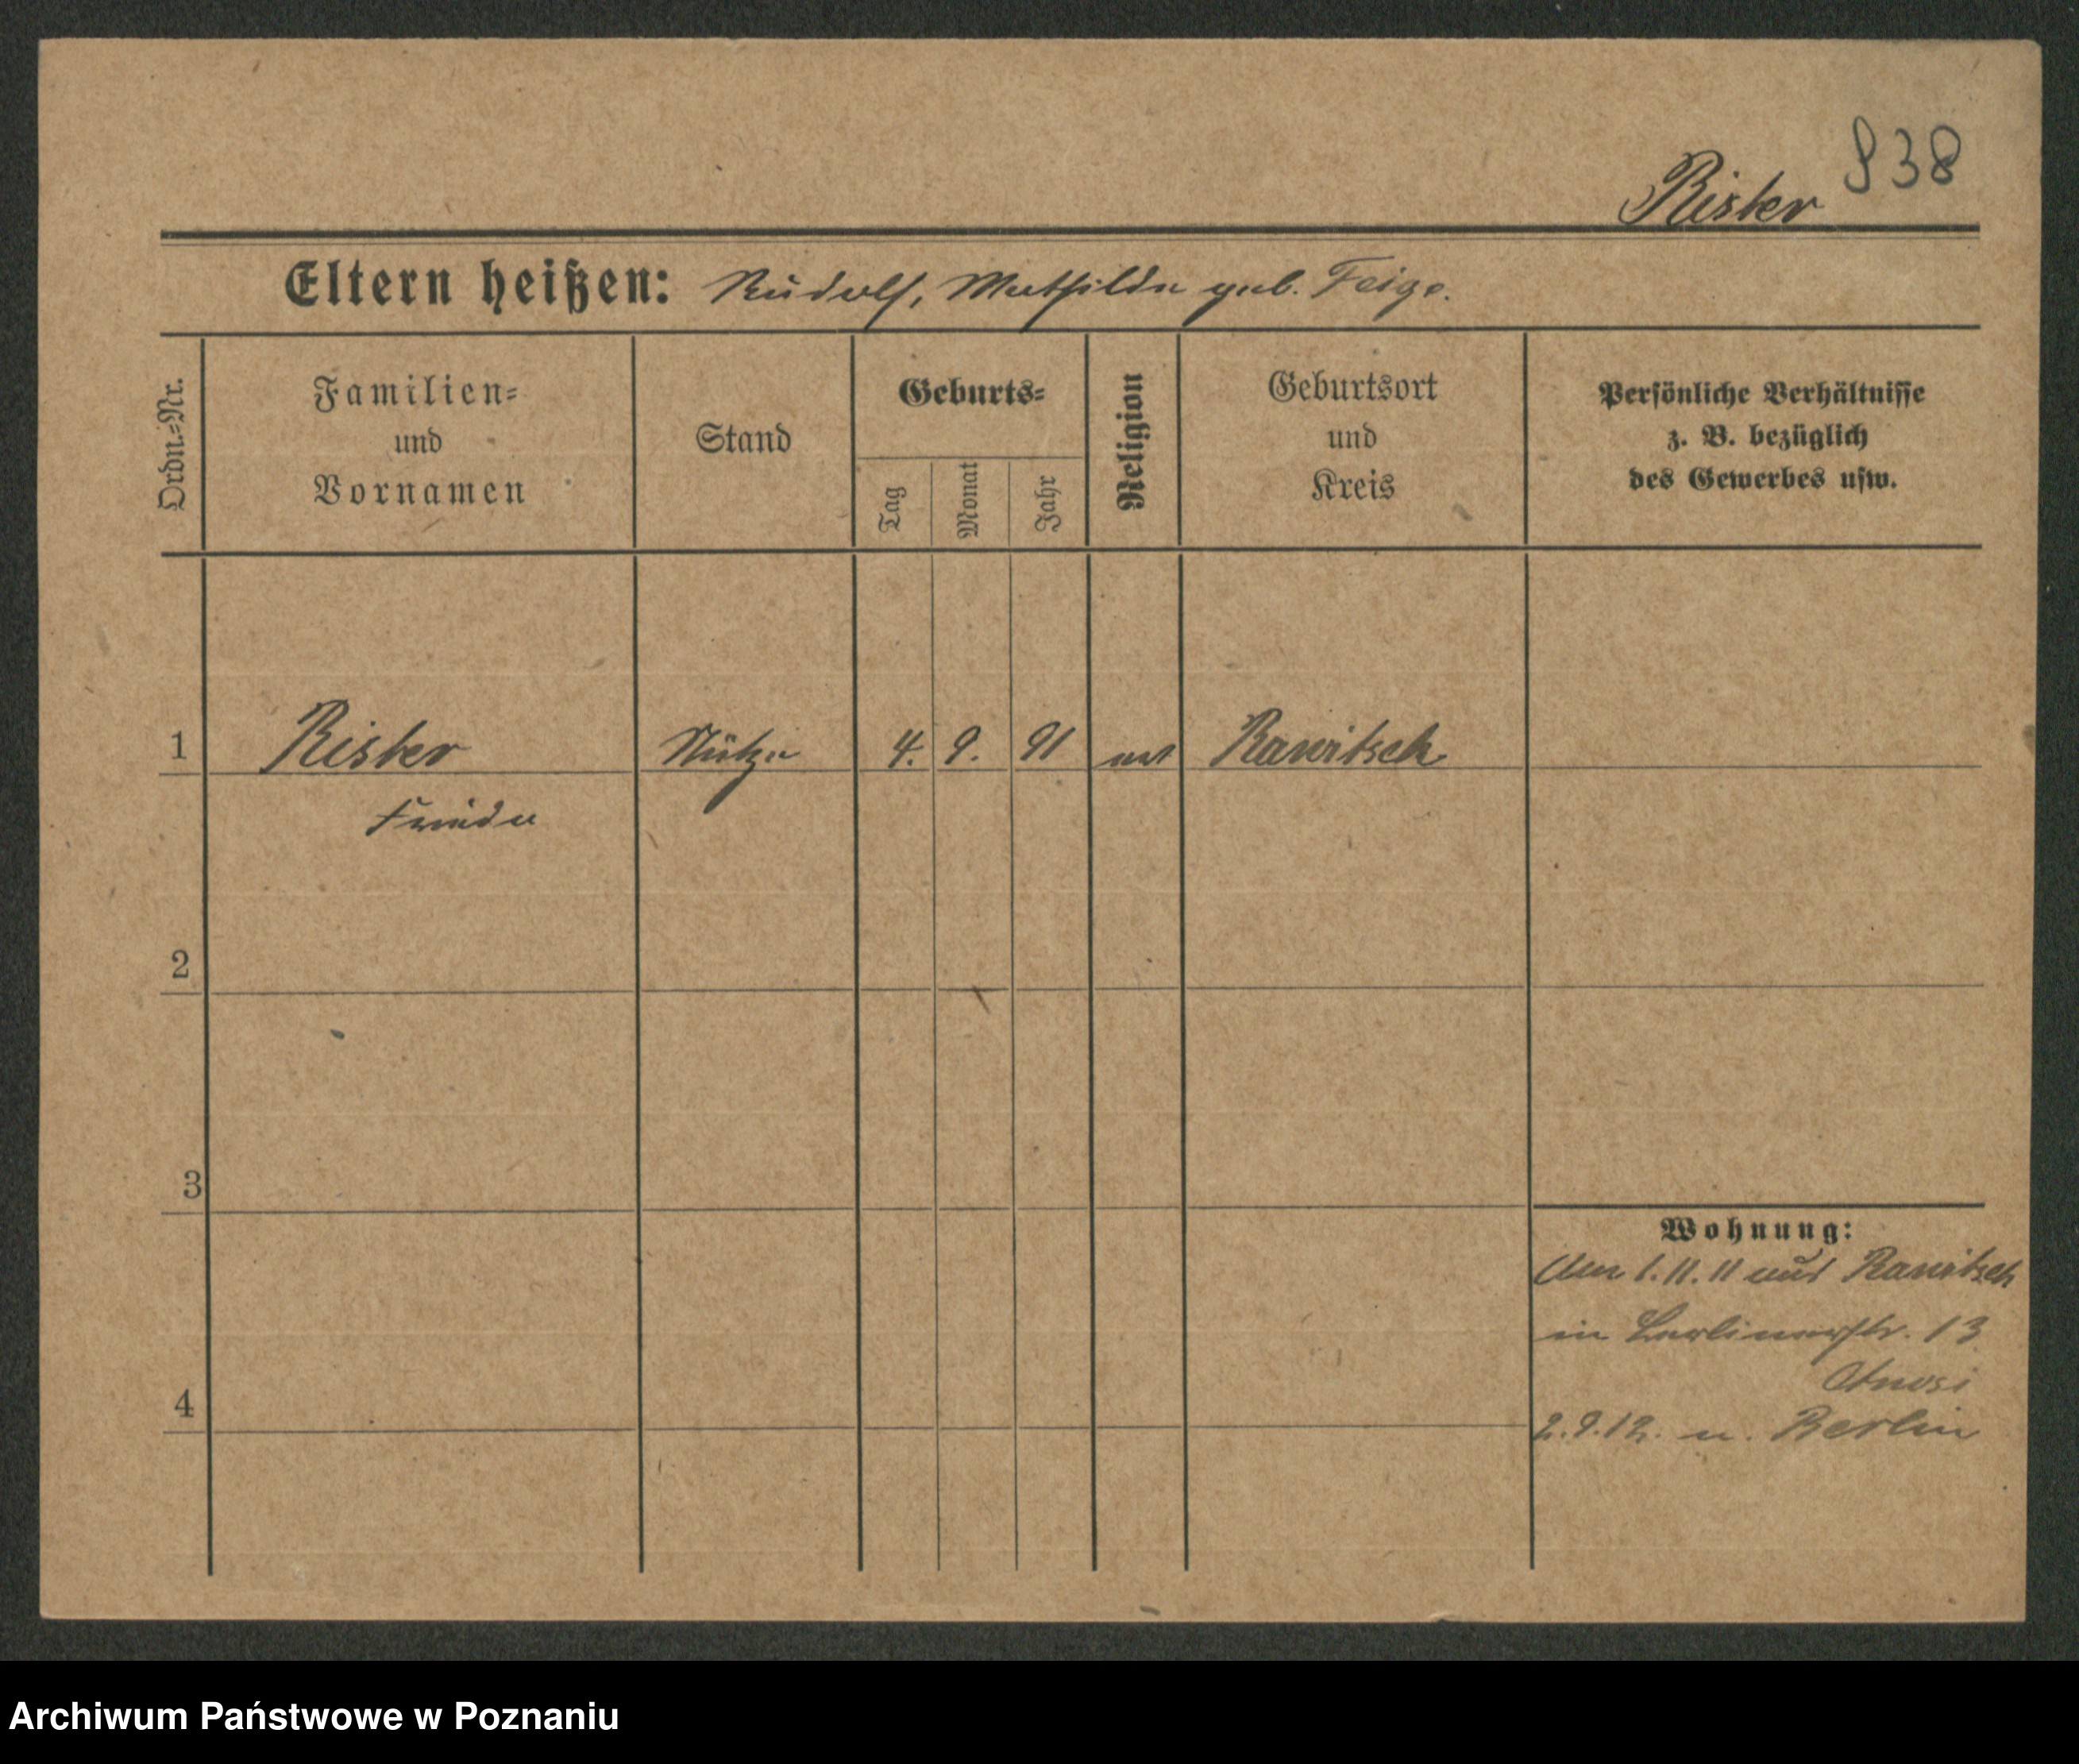 838
Rister
Eltern heißen: Rudolf, Mathilde geb. Feige.
Ordn.=Nr.
Familien=
und
Vornamen
Stand
Geburts=
Tag
Monat
Jahr
Religion
Geburtsort
und
Kreis
Persönliche Verhältnisse
z. B. bezüglich
des Gewerbes usw.
1 Rister 4. 9. 91 Rawitsch
Frieda
2
3
4
Wohnung:
1.11.11 aus Rawitsch
in Berlinerstr. 13
2.9.12. n. Berlin
Archiwum Państwowe w Poznaniu